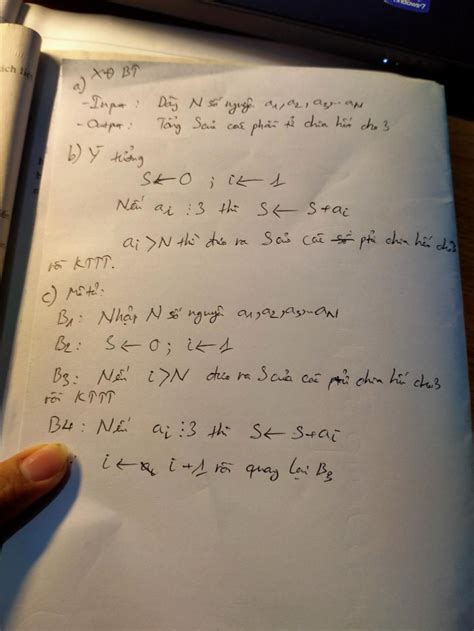 Windows7
a) XĐ BT
- Input: Dãy N số nguyên a1, a2, a3,...aN
- Output: Tổng S của các phần tử chia hết cho 3
b) Ý tưởng
S ← 0 ; i ← 1
Nếu ai ⋮ 3 thì S ← S + ai
ai > N thì đưa ra S của các ptử chia hết cho 3
rồi KTTT.
c) Mô tả:
B1: Nhập N số nguyên a1, a2, a3,...aN
B2: S ← 0 ; i ← 1
B3: Nếu i > N đưa ra S của các ptử chia hết cho 3
rồi KTTT
B4: Nếu ai ⋮ 3 thì S ← S + ai
i ← i + 1 rồi quay lại B3